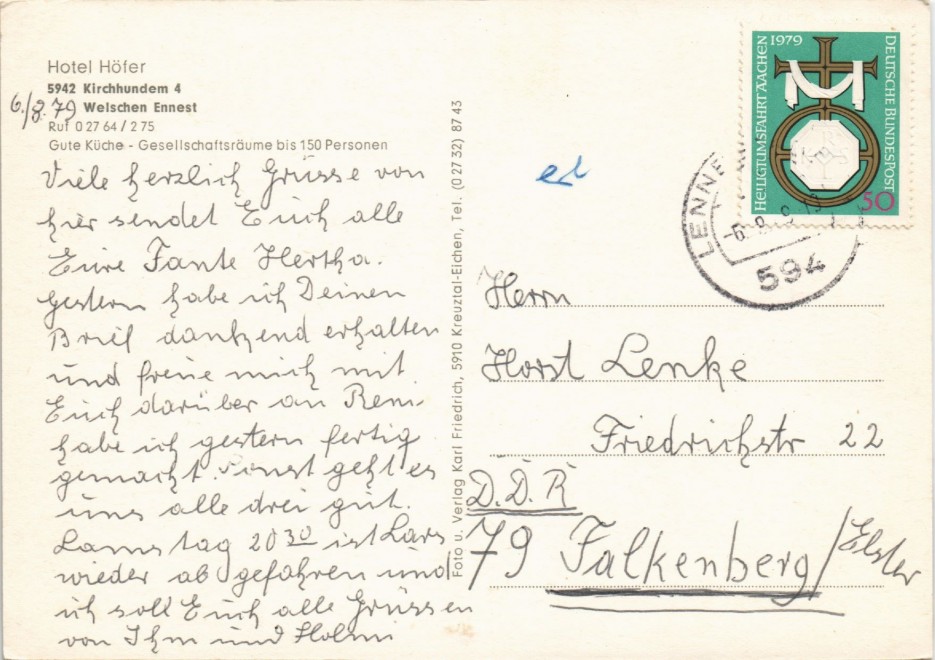 Hotel Höfer
5942 Kirchhundem 4
6./8.79 Welschen Ennest
Ruf 0 27 64 / 2 75
Gute Küche - Gesellschaftsräume bis 150 Personen
Viele herzlich Grüsse von
hier sendet Euch alle
Eure Tante Hertha.
Gestern habe ich Deinen
Brief dankend erhalten
und freue mich mit
Euch darüber an
habe ich gestern fertig
gemacht. sonst geht es
uns alle drei gut.
Samstag 20 30 ist Lars
wieder ab gefahren und
ich soll Euch alle Grüssen
von Ihm und
Foto u. Verlag Karl Friedrich, 5910 Kreuztal-Eichen, Tel. (0 27 32) 87 43
HEILIGTUMSFAHRT AACHEN 1979
DEUTSCHE BUNDESPOST
50
LENNE
-6.8.
594
Herrn
Horst Lenke
Friedrichstr 22
D.D.R
79 Falkenberg/Elster